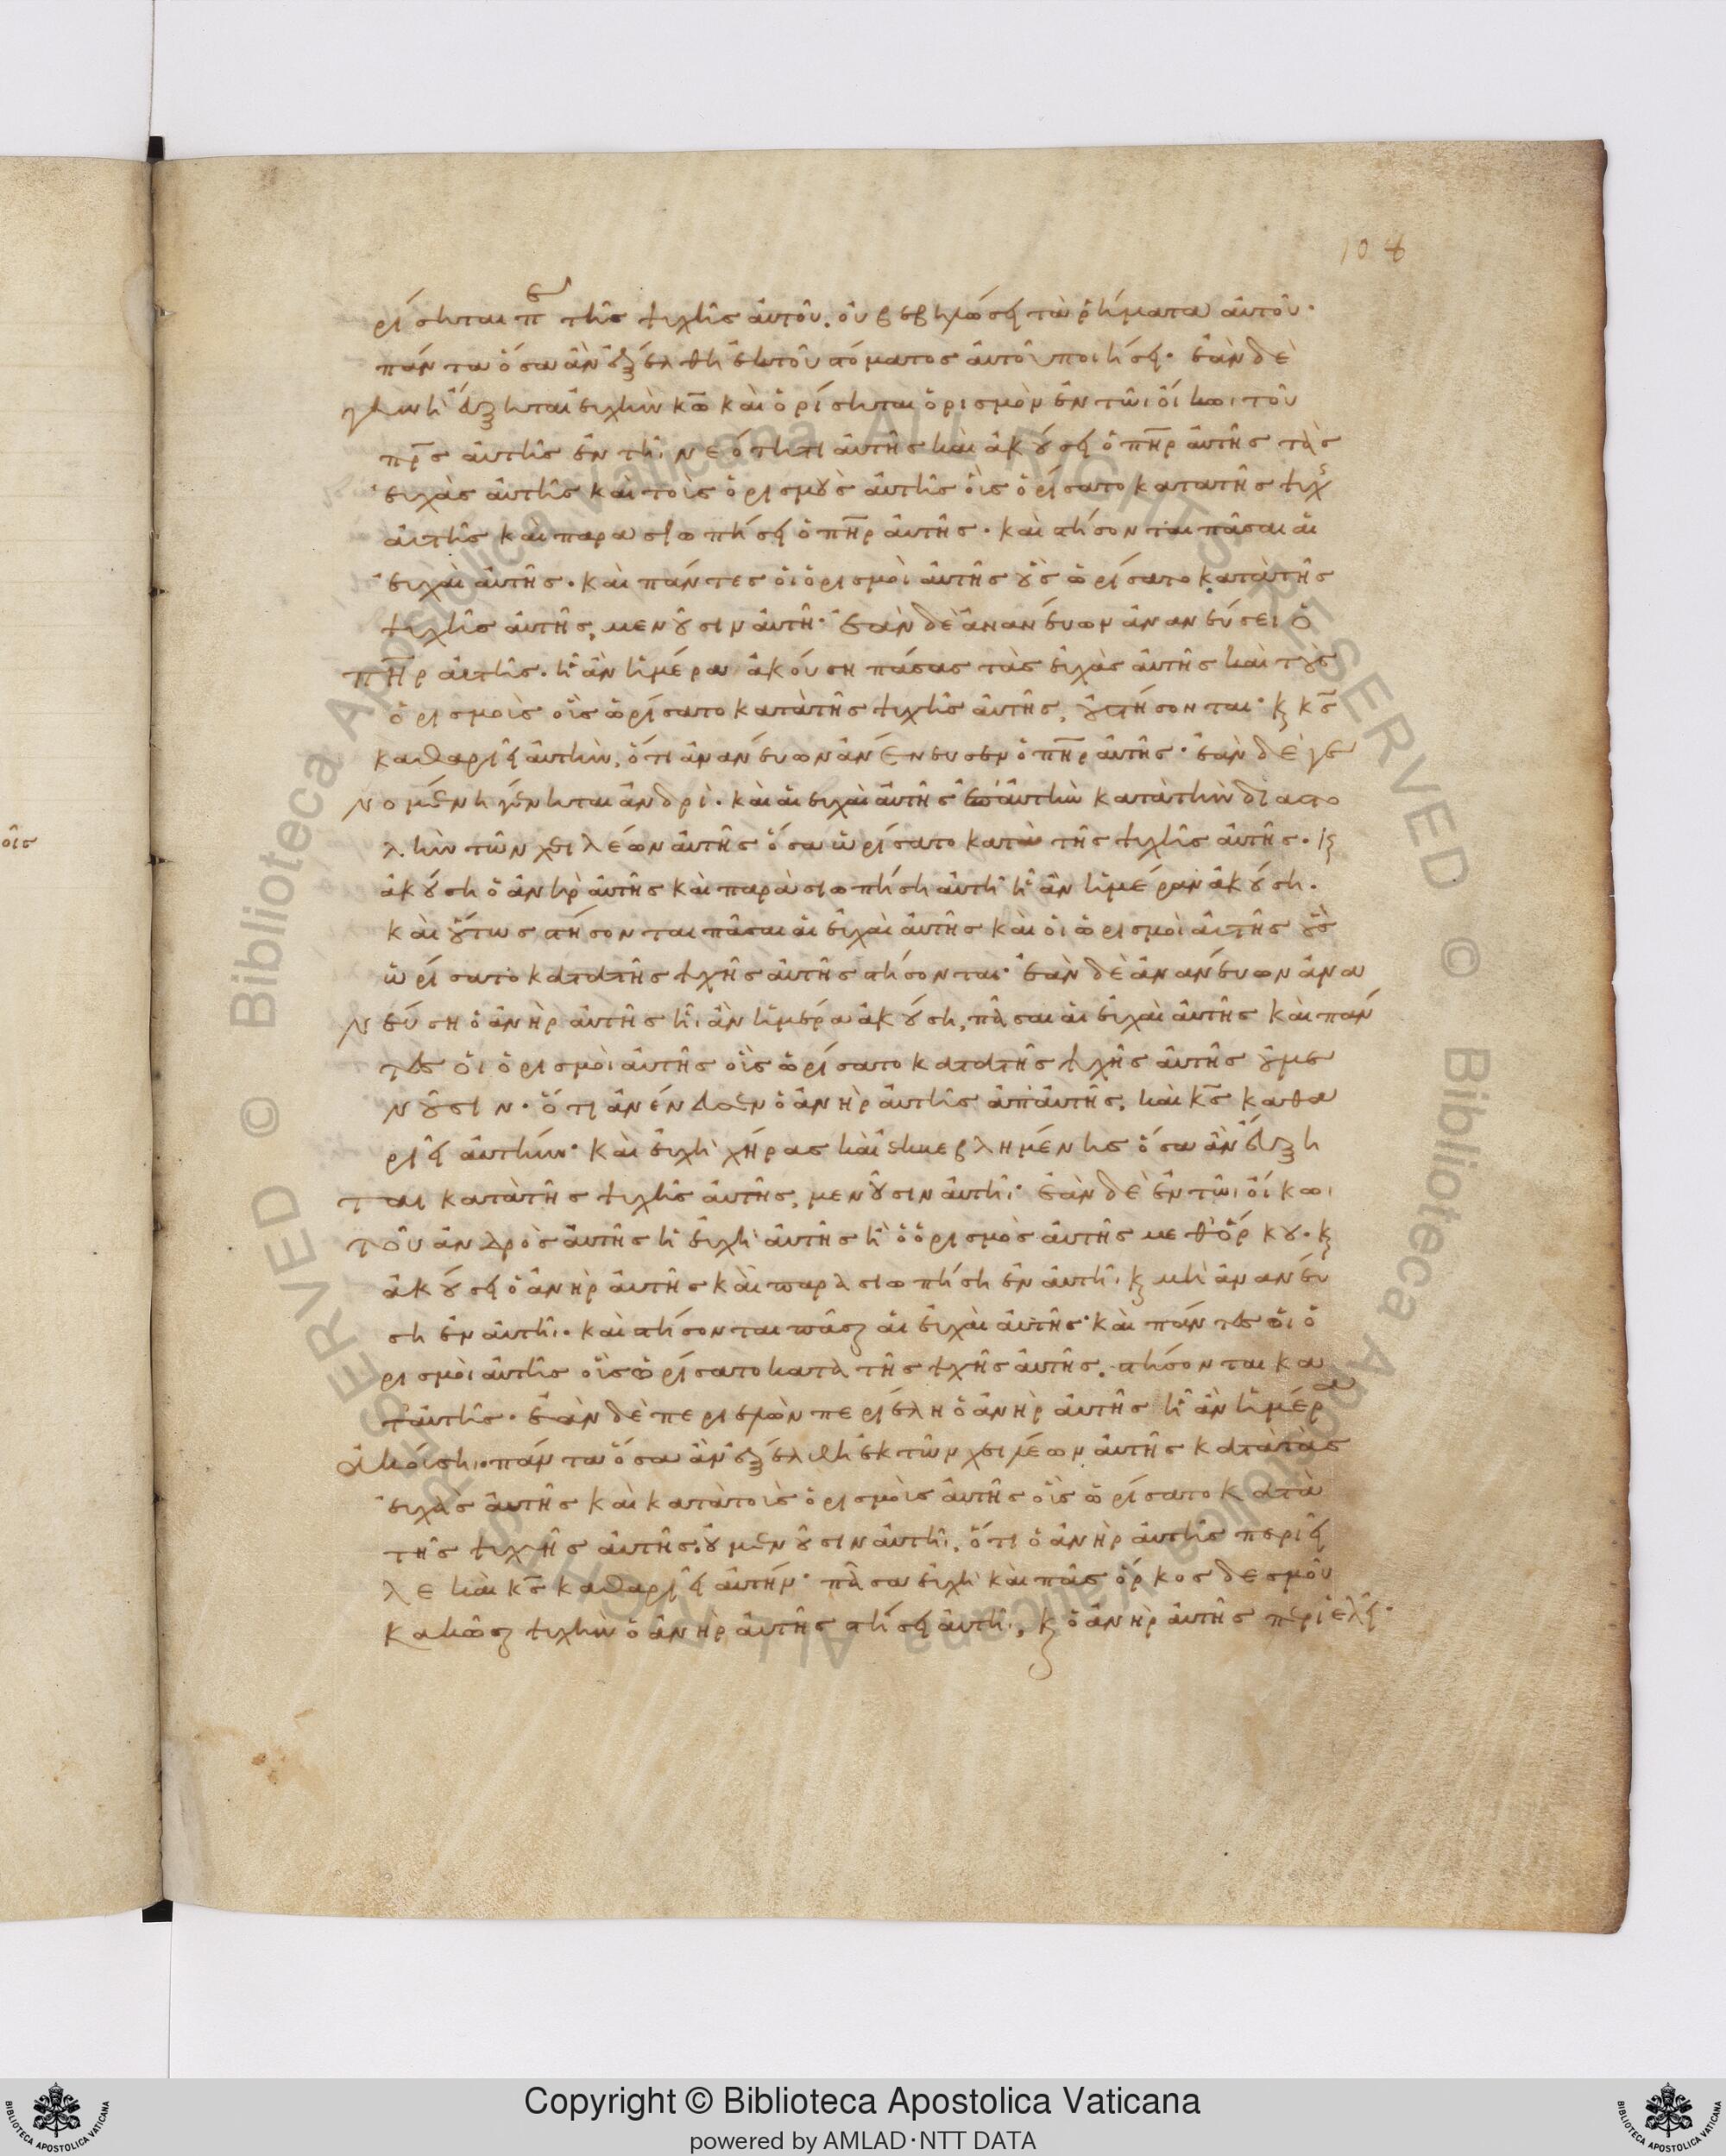 108
ρίσηται περὶ τῆς ψυχῆς αὐτοῦ. οὐ βεβηλώσει τὰ ῥήματα αὐτοῦ·
πάντα ὅσα ἂν ἐξέλθη ἐκ τοῦ στόματος αὐτοῦ ποιήσει· ἐὰν δὲ
γυνὴ εὔξηται εὐχὴν κω καὶ ὁρίσηται ὁρισμὸν ἐν τῶι οἴκωι τοῦ
πρς αὐτῆς ἐν τῆι νεότητι αὐτῆς καὶ ἀκούσει ὁ πηρ αὐτῆς τὰς
εὐχὰς αὐτῆς καὶ τοὺς ὁρισμοὺς αὐτῆς οὓς ὁρίσατο κατὰ τῆς ψυχῆς
αὐτῆς καὶ παρασιωπήσει ὁ πηρ αὐτῆς· καὶ στήσονται πᾶσαι αἱ
εὐχαὶ αὐτῆς· καὶ πάντες οἱ ὁρισμοὶ αὐτῆς οὓς ὡρίσατο κατὰ τῆς
ψυχῆς αὐτῆς, μενοῦσιν αὐτῆ· ἐὰν δὲ ἀνανεύων ἀνανεύσει ὁ
πηρ αὐτῆς. ἧ ἂν ἡμέρα ἀκούση πάσας τὰς εὐχὰς αὐτῆς καὶ τοὺς
ὁρισμοὺς οὓς ὡρίσατο κατὰ τῆς ψυχῆς αὐτῆς, οὐ στήσονται· κ κς
καθαριεῖ αὐτὴν, ὅτι ἀνανεύων ἀνένευσεν ὁ πηρ αὐτῆς· ἐὰν δὲ γε
νομένη γένηται ἀνδρὶ. καὶ αἱ εὐχαὶ αὐτῆς ἐπ' αὐτὴν κατὰ τὴν διαστο
λὴν τῶν χειλέων αὐτῆς ὅσα ὡρίσατο κατὰ τῆς ψυχῆς αὐτῆς. κ
ἀκούση ὁ ἀνὴρ αὐτῆς καὶ παρασιωπήση αὐτῆ ἧ ἂν ἡμέραν ἀκούση.
καὶ οὕτως στήσονται πᾶσαι αἱ εὐχαὶ αὐτῆς καὶ οἱ ὡρισμοὶ αὐτῆς οὓς
ὡρίσατο κατὰ τῆς ψυχῆς αὐτῆς στήσονται· ἐὰν δὲ ἀνανεύων ἀνα
νεύση ὁ ἀνὴρ αὐτῆς ἧι ἂν ἡμέρα ἀκούση, πᾶσαι αἱ εὐχαὶ αὐτῆς καὶ πάν
τες οἱ ὁρισμοὶ αὐτῆς οὓς ὡρίσατο κατὰ τῆς ψυχῆς αὐτῆς οὐ με
νοῦσιν· ὅτι ἀνένευσεν ὁ ἀνὴρ αὐτῆς ἀπ' αὐτῆς, καὶ κς καθα
ριεῖ αὐτήν· καὶ εὐχὴ χήρας καὶ ἐκβεβλημένης ὅσα ἂν εὔξη
ται κατὰ τῆς ψυχῆς αὐτῆς, μενοῦσιν αὐτῆι· ἐὰν δὲ ἐν τῶι οἴκωι
τοῦ ἀνδρὸς αὐτῆς ἡ εὐχὴ αὐτῆς ἢ ὁ ὁρισμὸς αὐτῆς μεθ' ὅρκου. κ
ἀκούσει ὁ ἀνὴρ αὐτῆς καὶ παρασιωπήση ἐν αὐτῆι κ μὴ ἀνανεύ
ση ἐν αὐτῆι. καὶ στήσονται πᾶσαι αἱ εὐχαὶ αὐτῆς· καὶ πάντες οἱ ὁ
ρισμοὶ αὐτῆς οὓς ὡρίσατο κατὰ τῆς ψυχῆς αὐτῆς, στήσονται κα
τ' αὐτῆς. ἐὰν δὲ περιελὼν περιέλη ὁ ἀνὴρ αὐτῆς ἧ ἂν ἡμέρα
ἀκούση. πάντα ὅσα ἂν ἐξέλθη ἐκ τῶν χειλέων αὐτῆς κατὰ τὰς
εὐχὰς αὐτῆς καὶ κατὰ τοὺς ὁρισμοὺς αὐτῆς οὓς ὡρίσατο κατὰ
τῆς ψυχῆς αὐτῆς, οὐ μενοῦσιν αὐτῆι, ὅτι ὁ ἀνὴρ αὐτῆς περιεῖ
λε καὶ κς καθαριεῖ αὐτήν· πᾶσα εὐχὴ καὶ πᾶς ὅρκος δεσμοῦ
κακῶσαι ψυχὴν ὁ ἀνὴρ αὐτῆς στήσει αὐτῆι, κ ὁ ἀνὴρ αὐτῆς περιελεῖ·
οἷς
© Biblioteca Apostolica Vaticana ALL RIGHTS RESERVED
© Biblioteca Apostolica Vaticana ALL RIGHTS RESERVED
Copyright © Biblioteca Apostolica Vaticana
powered by AMLAD·NTT DATA
BIBLIOTECA APOSTOLICA VATICANA
BIBLIOTECA APOSTOLICA VATICANA